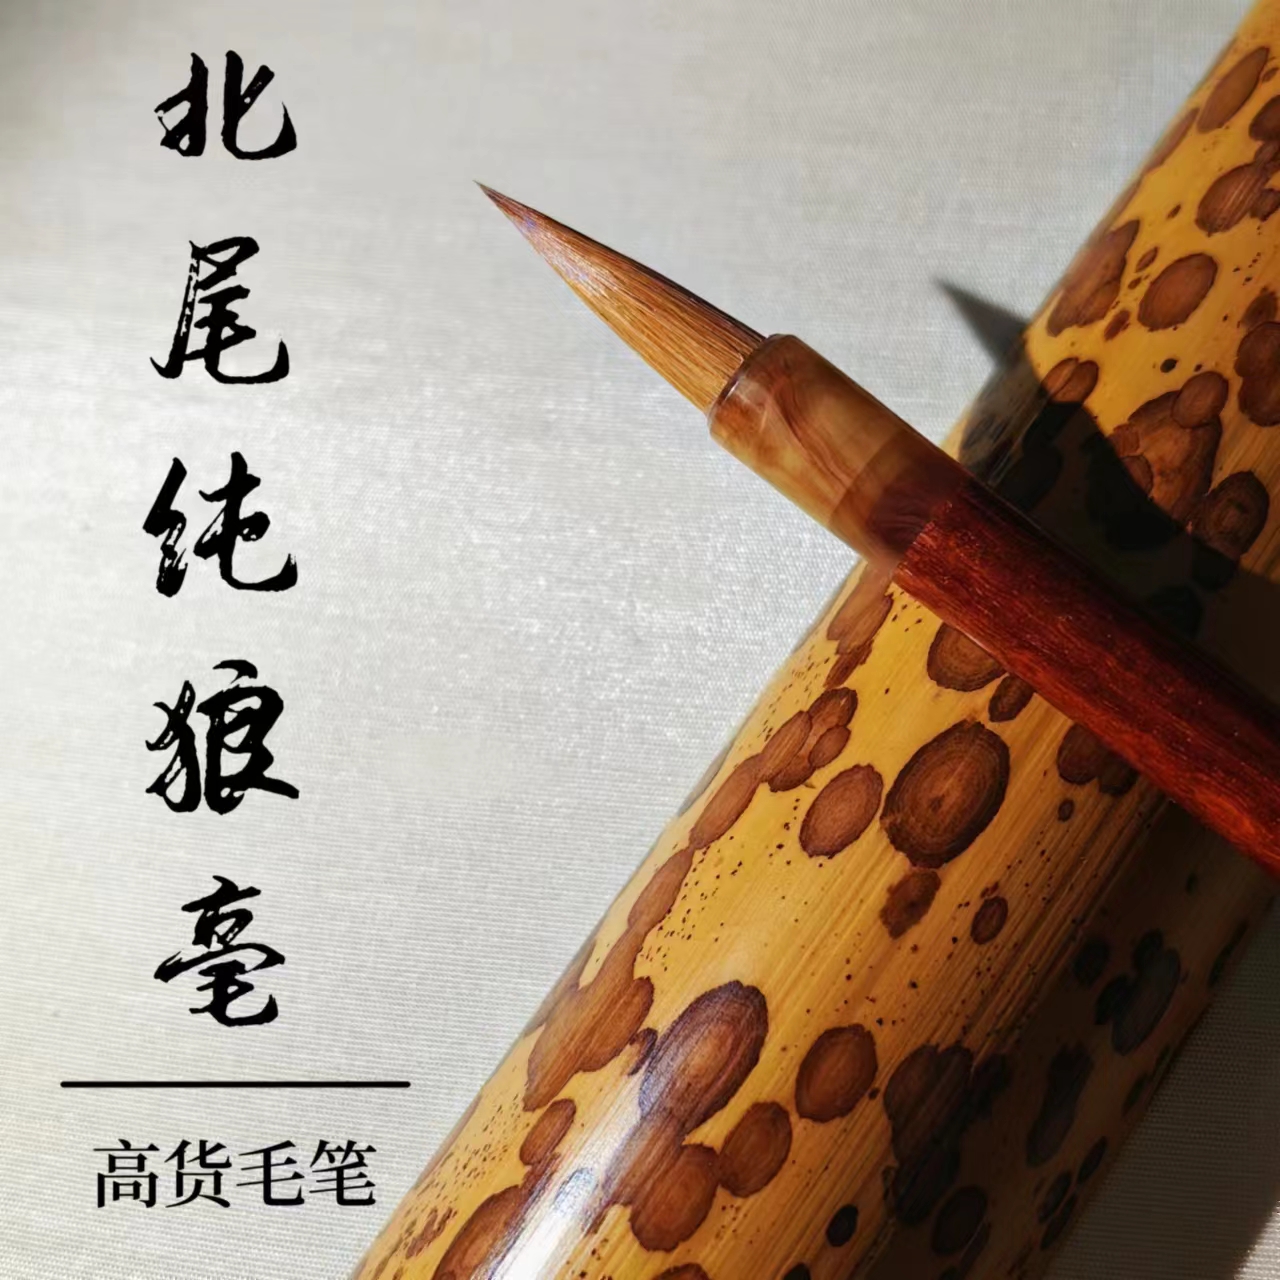 北尾纯狼毫
高货毛笔